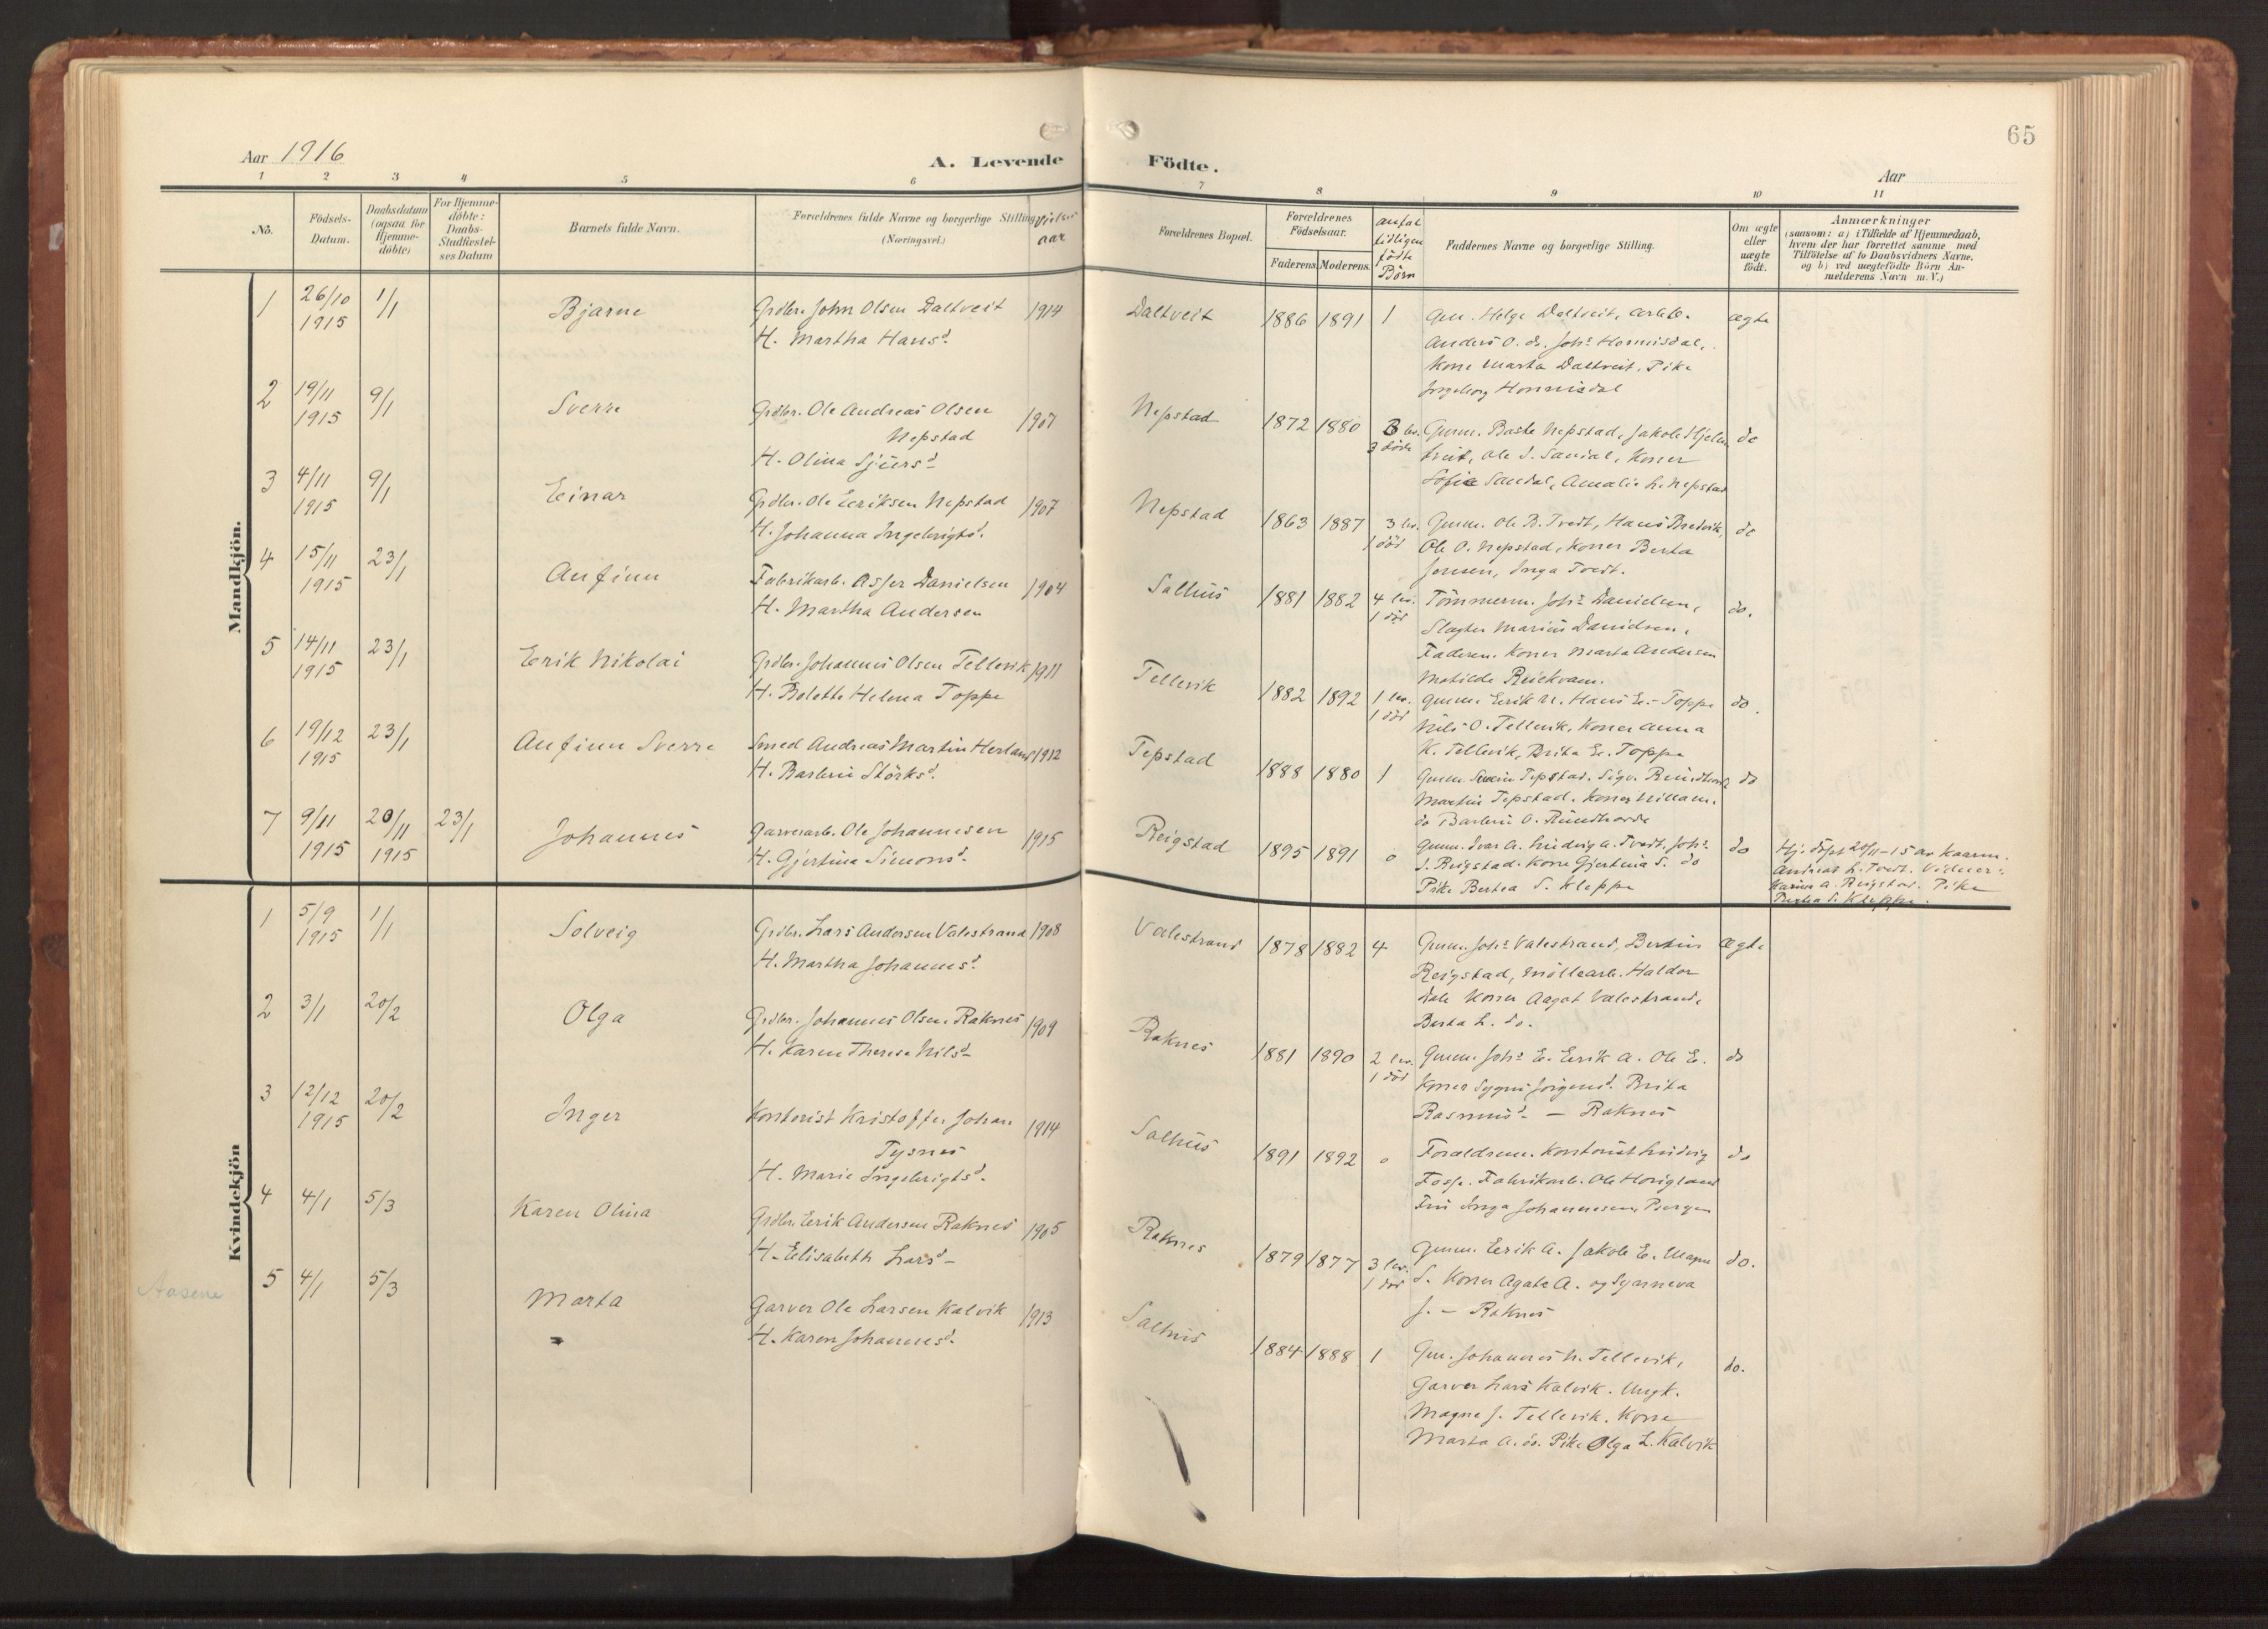 65
Aar 1916
A. Levende Födte.
Aar
1 2 3 4 5 6 7 8 9 10 11
No.
Födsels-
Datum.
Daabsdatum
(ogsaa for
Hjemme-
döbte)
For Hjemme-
döbte:
Daabs-
Stadfæstel-
ses Datum
Barnets fulde Navn.
Forældrenes fulde Navne og borgerlige Stilling
(Næringsvei.)
aar
Forældrenes Bopæl.
Forældrenes
Födselsaar.
Faderens. Moderens.
antal
tidligere
födte
Börn
Faddernes Navne og borgerlige Stilling.
Om ægte
eller
uægte
födt.
Anmærkninger
(saasom: a) i Tilfælde af Hjemmedaab,
hvem der har forrettet samme med
Tilföielse af to Daabsvidners Navne.
og b) ved uægtefödte Börn An-
melderens Navn m. V.)
Mandkjön.
1 26/10 1915 1/1 Bjarne
Grdbr. John Olsen Daltveit 1914
H. Martha Hansd.
Daltveit 1886 1891 1
Gm. Helge Daltveit, arbb.
Anders O. do. Johs Hornisdal,
Kone Marta Daltveit, Pike
Ingeborg Hornisdal
ægte
2 19/11 1915 9/1 Sverre
Grdbr. Ole Andreas Olsen
Nepstad 1907
H. Olina Sjursd
Nepstad 1872 1880 3 lev. 3 döde
Gmm. Baste Nepstad, Jakob Hjelm
tveit, Ole S. Sandal, Koner
Sofie Sandal, Amalie L. Nepstad
do
3 4/11 1915 9/1 Einar
Grdbr. Ole Eeriksen Nepstad 1907
H. Johanna Ingebrigtd.
Nepstad 1863 1887 3 lev. 1 död
Gmm. Ole B. Tvedt, Hans Bredvik,
Ole O. Nepstad, Koner Berta
Jensen, Inga Tvedt.
do
4 15/11 1915 23/1 Anfinn
Fabrikarb. Asser Danielsen 1904
H. Martha Andersen
Salhus 1881 1882 4 lev. 1 död
Tömmerm. Johs Danielsen,
Slagter Marius Danielsen,
Faderen. Koner Marta Andersen
Matilde Reiekvam.
do.
5 14/11 1915 23/1 Erik Nikolai
Grdbr. Johannes Olsen Tellevik 1911
H. Bolette Helena Toppe
Tellevik 1882 1892 1 lev. 1 död
Gmm. Erik N. Hans E. - Toppe
Nils O. Tellevik, Koner Anna
K. Tellevik, Brita E. Toppe
do.
6 19/12 1915 23/1 Anfinn Sverre
Smed Andreas Martin Herland 1912
H. Barbru Störksd.
Tepstad 1888 1880 1
Gmm. Severin Tepstad. Sigv. Rundhovde
Martin Tepstad. Koner Willam.
do Barbru O. Rundhovde
do
7 9/11 1915 20/11 1915 23/1 Johannes
Garverarb. Ole Johannesen 1915
H. Gjertine Simonsd.
Reigstad 1895 1891 0
Gmm. Ivar A. Ludvig A. Tvedt. Johs.
S. Reigstad. Kone Gjertina S. do
Pike Bertea S. Kleppe
do
Hj. döpt 20/11-15 av Kaarm.
Andreas L. Tvedt. Vidner:
Karine A. Reigstad. Pike
Bertea S. Kleppe.
Kvindekjön
1 5/9 1915 1/1 Solveig
Grdbr. Lars Andersen Valestrand 1908
H. Martha Johannesd.
Valestrand 1878 1882 4
Gmm. Johs Valestrand, Bertin
Reigstad, Möllearb. Haldor
Dale Koner Aagot Valestrand,
Berta L. do.
ægte
2 3/1 20/2 Olga
Grdbr. Johannes Olsen Raknes 1909
H. Karen Therese Nilsd
Raknes 1881 1890 2 lev. 1 död
Gmm. Johs E. Erik A. Ole E.
Koner Sygni Jörgensd. Brita
Rasmusd - Raknes
do
3 12/12 1915 20/2 Inger
Kontorist Kristoffer Johan
Tysnes 1914
H. Marie Ingebrigtsd.
Salhus 1891 1892 0
Forældrene. Kontorist Ludvig
Fosse. Fabrikarb. Ole Horigland
Fru Inga Johannesen, Bergen
do
4 4/1 5/3 Karen Olina
Grdbr. Erik Andersen Raknes 1905
H. Elisabeth Larsd
Raknes 1879 1877 3 lev. 1 död
Gmm. Erik A. Jakob E. Magne
S. Koner Agate A. og Synneva
J. - Raknes
do.
Aasene
5 4/1 5/3 Marta
Garver Ole Larsen Kalvik 1913
H. Karen Johannesd.
Salhus 1884 1888 1
Gm. Johannes N. Tellevik,
Garver Lars Kalvik. Ungk.
Magne J. Tellevik. Kone
Marta A. do. Pike Olga L. Kalvik
do.